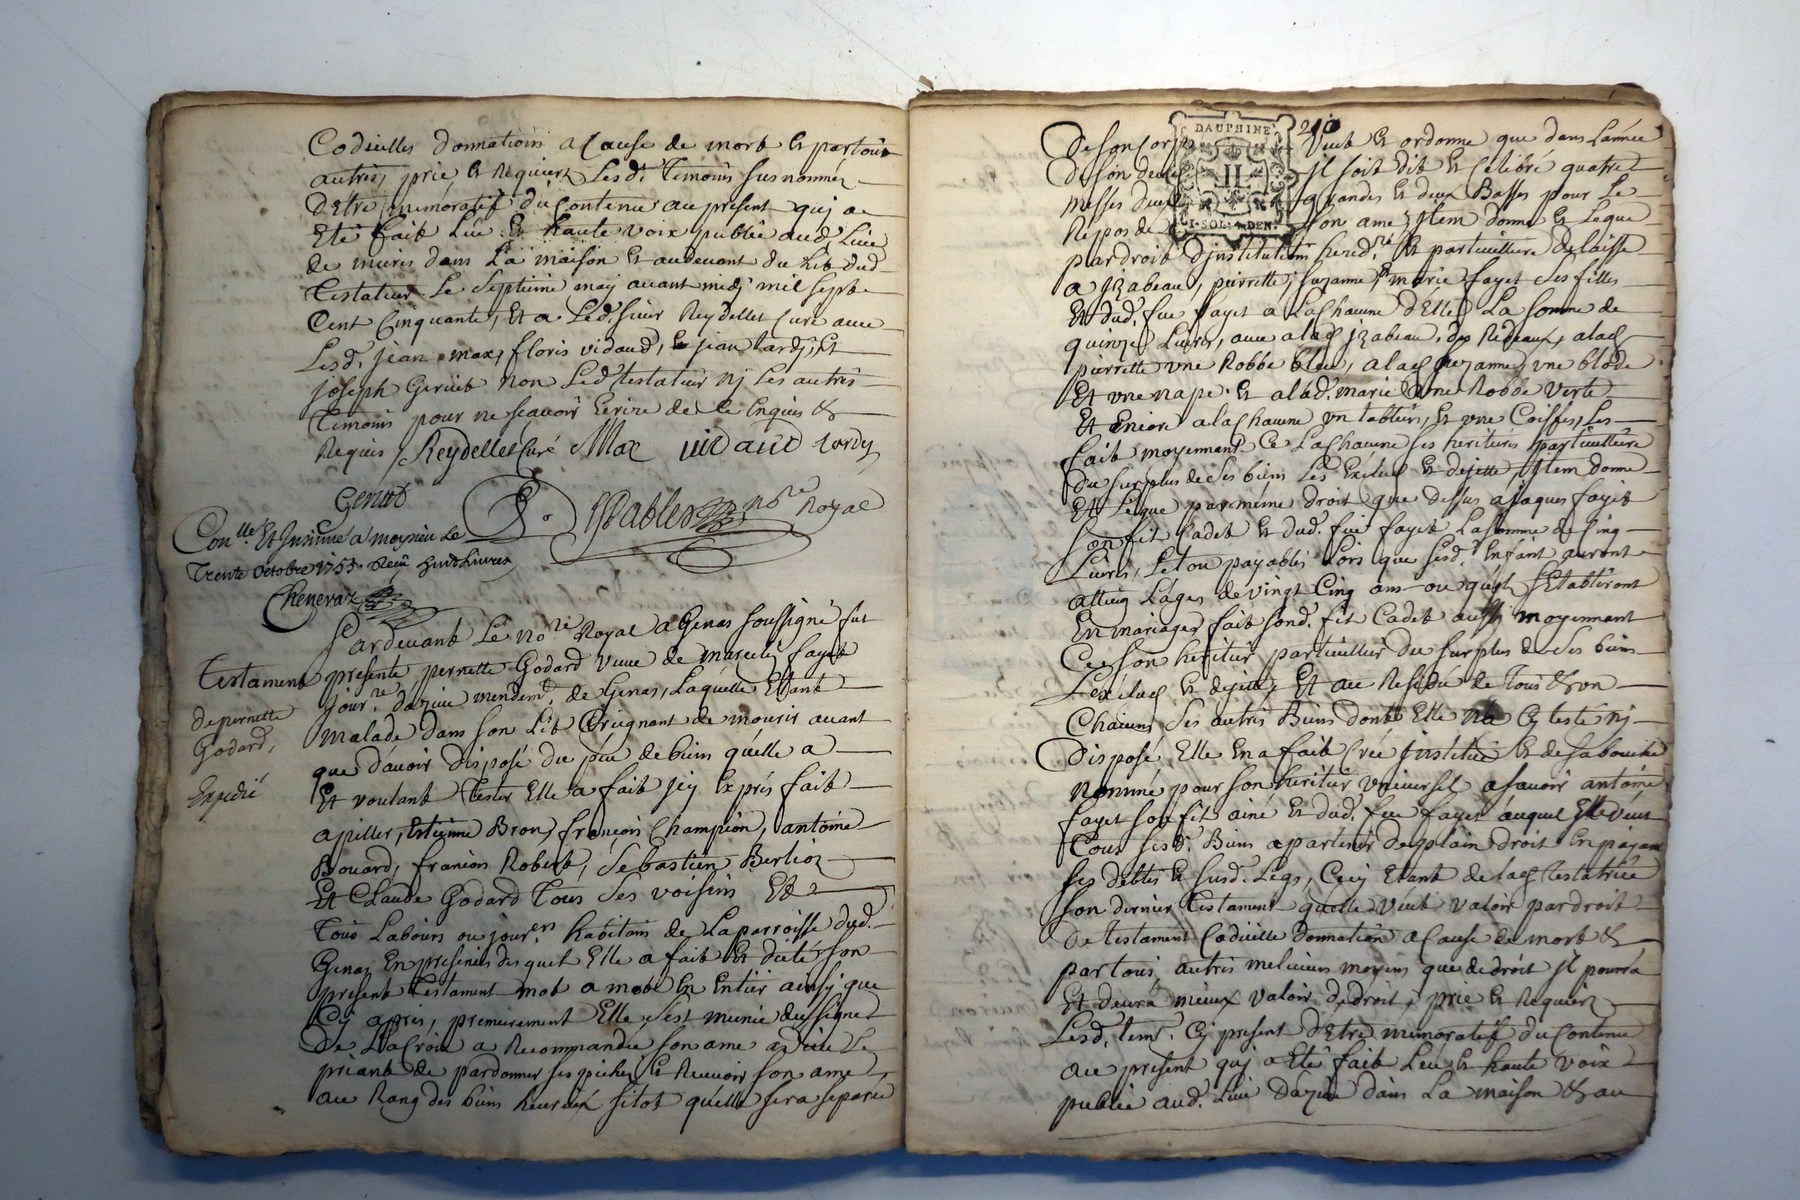 Codicilles donnations a Cause de mort et partous
autres, prie et Requiert Lesd. Temoins susnommez
D'etre memoratif du contenu au present quj a
Eté fait Lue et haute voix publié aud. Lieu
de mures dans La maison et audevant du Lit dud
Testateur Le Septieme may avant midj mil sept
Cent Cinquante, Et a Led. sieur Reydellet Curé avec
Lesd. jean max, floris vidaud, et jean tardy, Et
joseph Geriut non Led testateur nj Les autres
Temoins pour ne sçavoir Ecrire de ce Enquis &
Requis / Reydellet Curé Max vidaud tardy
Geriut
Pables no.re Royal
Con.lle Et Insinué a moysieu Le
Trente octobre 1753. Reçu huit Livres
Chenevaz
Pardevant Le No.re Royal a Genas soussigné fut
Testament presente pernette Godard veuve de marcelin fayet
jour.re dazieu mendem.t de Genas, Laquelle Etant
de pernette
malade dans son Lit Creignant de mourir avant
Godard,
que d'avoir disposé du peu de biens quelle a
Expedié
Et voulant Tester Elle a fait jcy Exprés fait
apeller, Estienne Bron, françois Champion, antoine
Bouard, françois Robert, Sebastien Berlioz
Et Claude Godard Tous Ses voisins Et
Tous Labours ou jour.ers habitans de La parroisse dud.
Genaz En presences desquel Elle a fait Et dicté son
present Testament mot a mot En Entier ainsy que
Cy apres, premierement Elle s'est munie du signe
De La Croix a Recommandée son ame a Dieu Le
priant de pardonner ses pechez et Recevoir son ame
au Rang des biens heureux sitot quelle sera separée
De son Corps Veut Et ordonne que dans Lannée
De son deces jl soit dit Et Celebré quatre
Messes deux grandes et deux Basses pour Le
Repos de son ame jtem donne Et Legue
DAUPHINÉ
II
I·SOL·4 DEN·
210
par droit d'institution hered.re Et particulliere delaisse
a jzabeau, pierrette, suzanne et marie fayet ses filles
Et dud. feu fayet a La Chacune d'Elles La somme de
quinze Livres, avec a lad jzabeau, des Rideaux, a lad
pierrette une Robbe bleu, a lad suzanne une blode
Et une nape et a lad. marie une Robbe verte
Et Encore a la Chacune un tablier, Et une Coiffes, Les
fait moyennant Ce La Chacune ses heritieres particulliere
du surplus de ses biens Les Exclud et dejette, jtem donne
Et Legue par meme droit que dessus a jaques fayet
son fit Cadet Et dud. feu fayet La somme de Cinq
Livres, Le tou payables Lors que sesd. Enfant auront
atteing L'ages de vingt Cinq ans ou qu'jls s'Etabliront
En mariages fait sond. fit Cadet aussy moyennant
Ce son heritier particullier du surplus de ses biens
L'exclud et dejette, Et au Residu de Tous & un
Chacuns ses autres Biens dont Elle n'a Cy testé nj
Disposé, Elle En a fait Crée jnstitué Et de sa bouche
nommé pour son heritier universel a sçavoir antoine
fayet son fit ainé Et dud. feu fayet auquel Elle veut
Tous sesd. Biens apartenir de plain droit En payant
ses debtes Et susd. Legs, Cecy Etant de lad testatrice
son dernier Testament quelle veut valoir par droit
De testament Codicille donnation a Cause de mort &
par tous autres melieurs moyens que de droit jl pourra
Et devra mieux valoir de droit, prie Et Requier
Lesd. tem. Cy present d'Etre memoratif du Contenu
au present quj a Eté fait Leu Et haute voix
publié aud. Lieu dazieu dans La maison & au